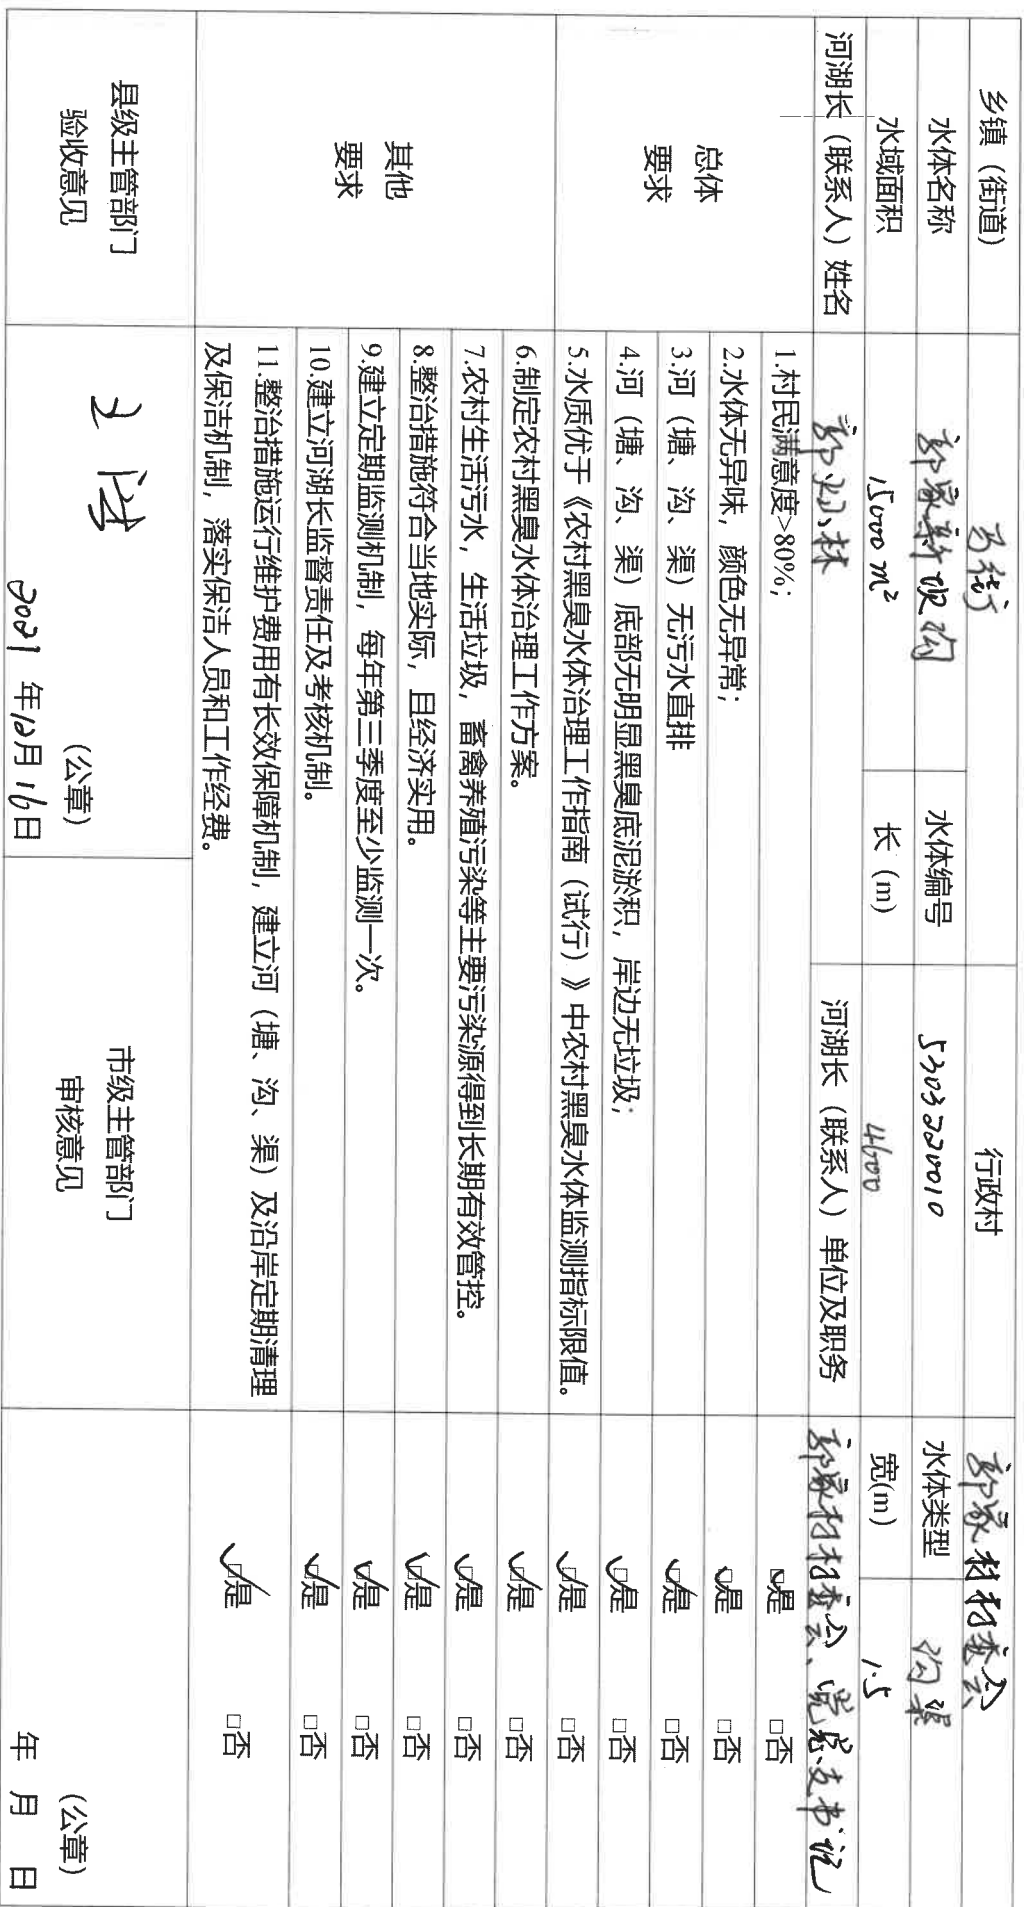 乡镇（街道） 马街 行政村 郭家村村委会
水体名称 郭家新坝沟 水体编号 5303220010 水体类型 沟渠
水域面积 15000 m² 长（m） 4600 宽(m) 1.5
河湖长（联系人）姓名 河湖长（联系人）单位及职务 郭家村村委会、党总支书记
总体
要求
1.村民满意度>80%； □是 □否
2.水体无异味，颜色无异常； □是 □否
3.河（塘、沟、渠）无污水直排 □是 □否
4.河（塘、沟、渠）底部无明显黑臭底泥淤积，岸边无垃圾； □是 □否
5.水质优于《农村黑臭水体治理工作指南（试行）》中农村黑臭水体监测指标限值。 □是 □否
其他
要求
6.制定农村黑臭水体治理工作方案。 □是 □否
7.农村生活污水，生活垃圾，畜禽养殖污染等主要污染源得到长期有效管控。 □是 □否
8.整治措施符合当地实际，且经济实用。 □是 □否
9.建立定期监测机制，每年第三季度至少监测一次。 □是 □否
10.建立河湖长监督责任及考核机制。 □是 □否
11.整治措施运行维护费用有长效保障机制，建立河（塘、沟、渠）及沿岸定期清理
及保洁机制，落实保洁人员和工作经费。 □是 □否
县级主管部门
验收意见
（公章）
2021 年12月16日
市级主管部门
审核意见
（公章）
年 月 日